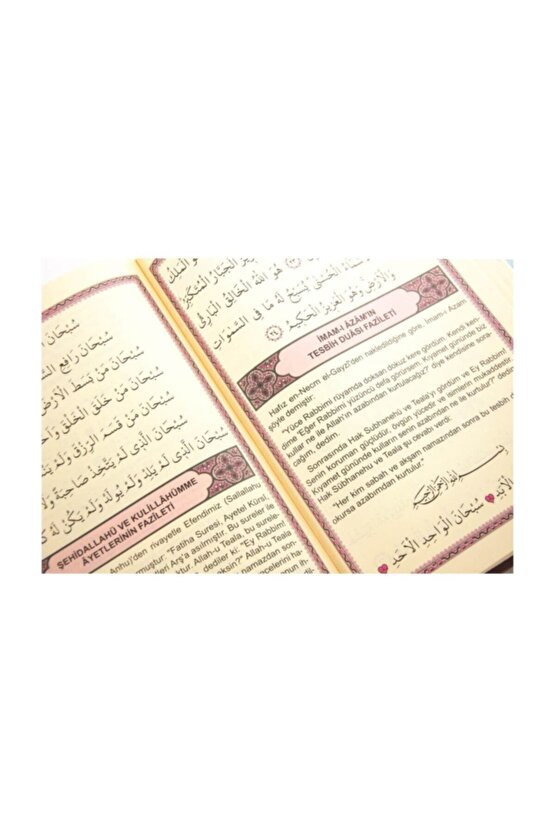 سُبْحَانَ
سُبْحَانَ رَافِعِ
سُبْحَانَ مَنْ بَسَطَ الْاَرْضَ
سُبْحَانَ مَنْ خَلَقَ الْخَلْقَ
سُبْحَانَ مَنْ قَسَمَ الرِّزْقَ وَلَمْ
سُبْحَانَ الَّذِى لَمْ يَتَّخِذْ صَاحِبَةً وَلَا
سُبْحَانَ الَّذِى لَمْ يَلِدْ وَلَمْ يُولَدْ وَلَمْ يَكُنْ لَهُ
ŞEHİDALLAHÜ VE KULİLLÂHÜMME
ÂYETLERİNİN FAZİLETİ
Anhu)'den rivayetle Efendimiz (Sallallahu
"Fatiha Suresi, Ayetel Kürsi
Arş'a asılmıştır. Bu sureler ile
Allah-u Teala, bu surele-
dediler ki: "Ey Rabbim!
Allah-u Teala
namazdan son-
الْجَبَّارُ الْمُتَكَبِّرُ
هُوَ اللّٰهُ الْخَالِقُ الْبَارِئُ
الْحُسْنٰى يُسَبِّحُ لَهُ مَا فِى السَّمٰوَاتِ
وَالْاَرْضِ وَهُوَ الْعَزِيزُ الْحَكِيمُ
İMAM-I ÂZAM'IN
TESBİH DUÂSI FAZİLETİ
Hafız en-Necm el-Gayzî'den nakledildiğine göre, İmam-ı Azam
şöyle demiştir:
"Yüce Rabbimi rüyamda doksan dokuz kere gördüm. Kendi ken-
dime "Eğer Rabbimi yüzüncü defa görürsem, Kıyamet gününde biz
kullar ne ile Allah'ın azabından kurtulacağız?" diye kendisine sora-
cağım, dedim.
Sonrasında Hak Subhanehü ve Teala'yı gördüm ve Ey Rabbim!
Senin koruman güçlüdür, övgün yücedir ve isimlerin mukaddestir.
Kıyamet gününde kulların senin azabından ne ile kurtulur?" dedim.
Hak Subhanehü ve Teala şu cevabı verdi:
"Her kim sabah ve akşam namazından sonra bu tesbih
okursa azabımdan kurtulur."
بِسْمِ اللّٰهِ الرَّحْمٰنِ الرَّحِيمِ
سُبْحَانَ الْوَاحِدِ الْاَحَدِ